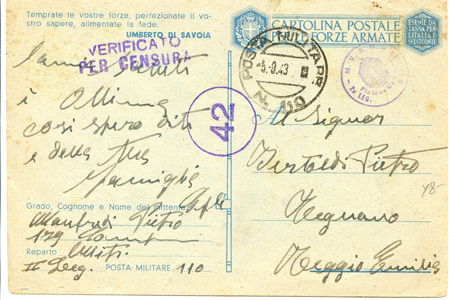 Temprate le vostre forze, perfezionate il vo-
stro sapere, alimentate la fede.
UMBERTO DI SAVOIA
VERIFICATO
PER CENSURA
CARTOLINA POSTALE
PER LE FORZE ARMATE
ESENTE DA
TASSA PER
L'ITALIA
POSTA MILITARE
-5.8.43
N. 110
M. V. S. N.
42
è Ottima
così spero di te
e della tua
famiglia
Al Signor
Bertoldi Pietro
Reggio Emilia
48
Grado, Cognome e Nome del mittente
Manfredi Pietro
Reparto
II Leg.
POSTA MILITARE 110